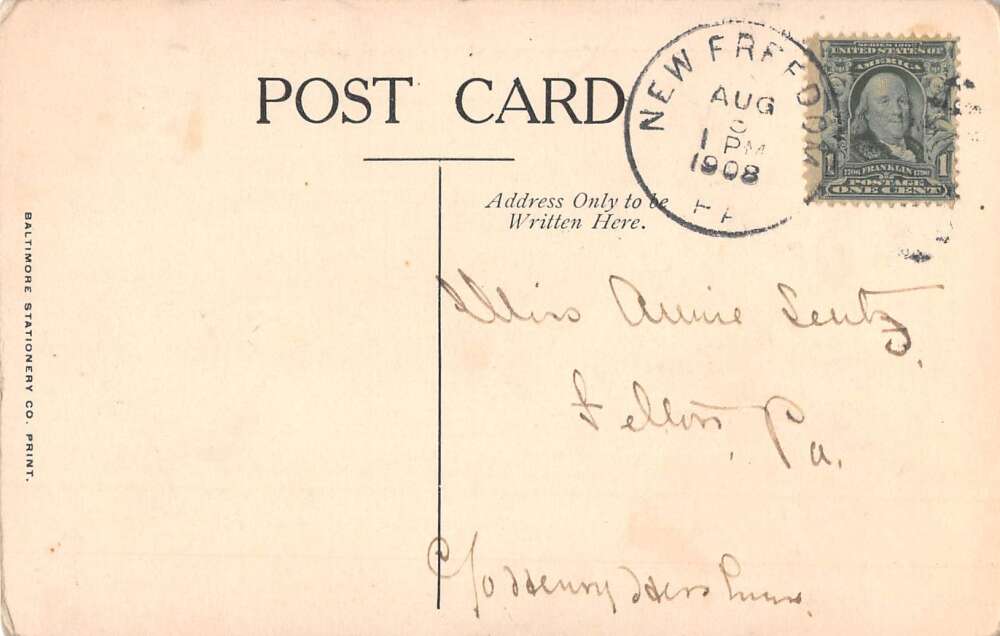 POST CARD
NEW FREEDOM
AUG
1 PM
1908
PA
SERIES 1902
UNITED STATES OF
AMERICA
1706 FRANKLIN 1790
1 1
POSTAGE
ONE CENT
Address Only to be
Written Here.
Miss Annie Lentz,
Pa.
C/o Henry
BALTIMORE STATIONERY CO. PRINT.